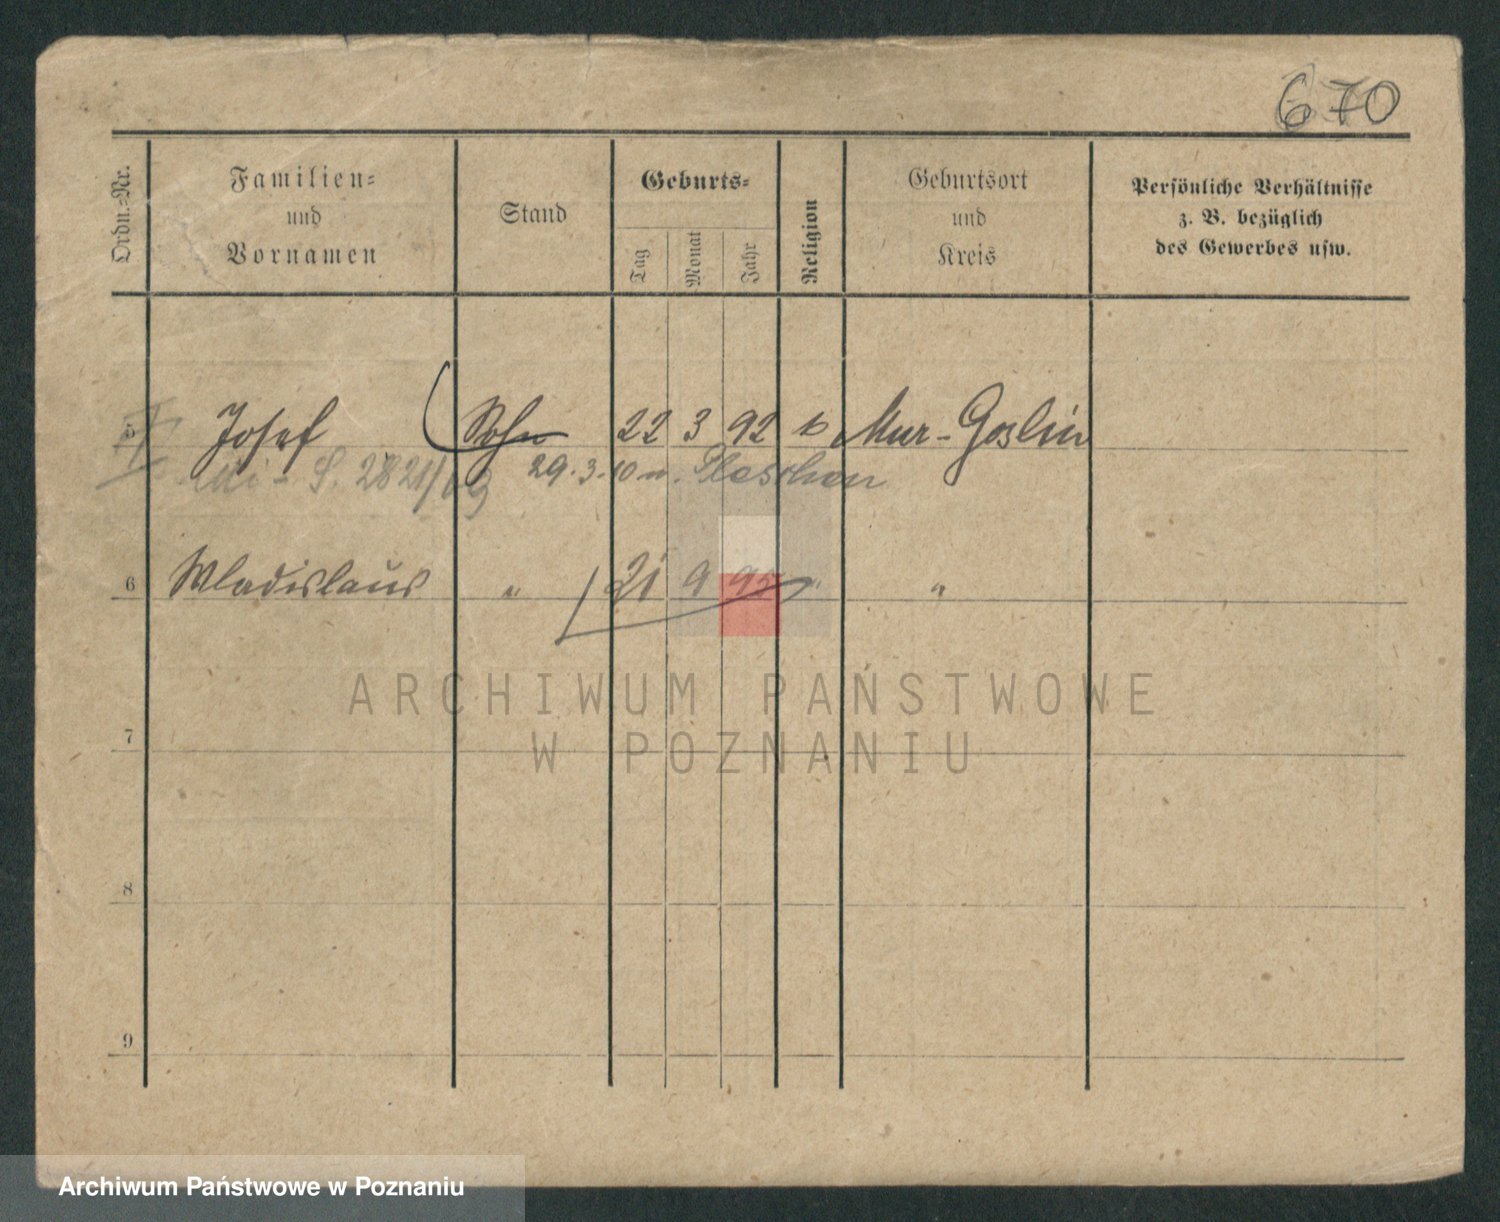 670
Ordn.-Nr.
Familien-
und
Vornamen
Stand
Geburts-
Tag
Monat
Jahr
Religion
Geburtsort
und
Kreis
Persönliche Verhältnisse
z. B. bezüglich
des Gewerbes usw.
5 Josef Sohn 22 3 92 k Mur-Goslin
S. 2821/09 29.3.10 n. Pleschen
6 Wladislaus " 21 9 95 " "
ARCHIWUM PAŃSTWOWE
W POZNANIU
7
8
9
Archiwum Państwowe w Poznaniu